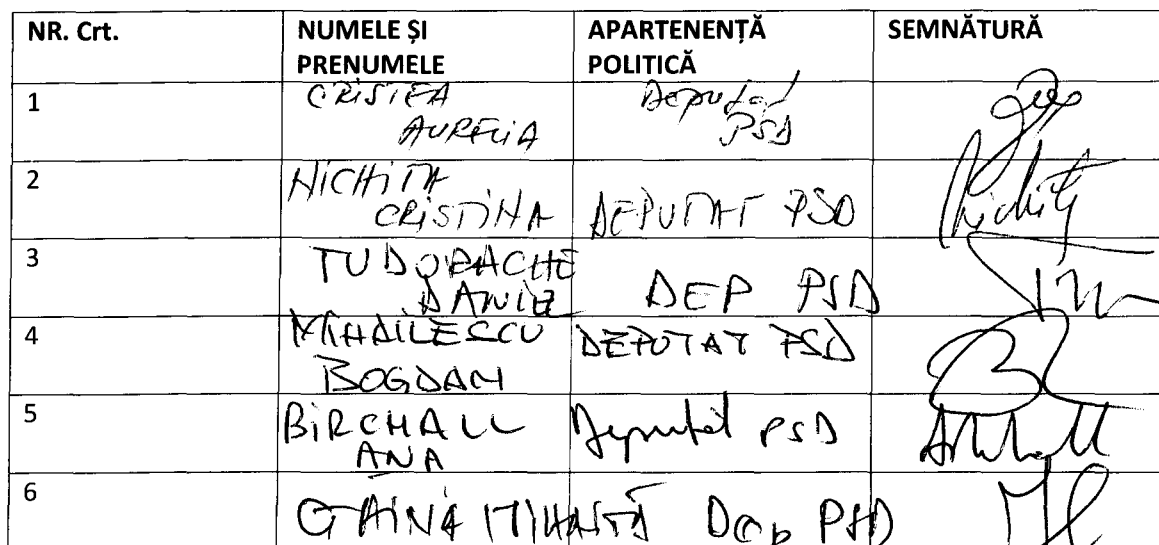 NR. Crt. NUMELE ȘI PRENUMELE APARTENENȚĂ POLITICĂ SEMNĂTURĂ
1 CRISTEA AURELIA Deputat PSD
2 NICHITA CRISTINA DEPUTAT PSD
3 TUDORACHE DANIEL DEP PSD
4 MIHAILESCU BOGDAN DEPUTAT PSD
5 BIRCHALL ANA Deputat PSD
6 GĂINĂ MIHĂIȚĂ Dep PSD